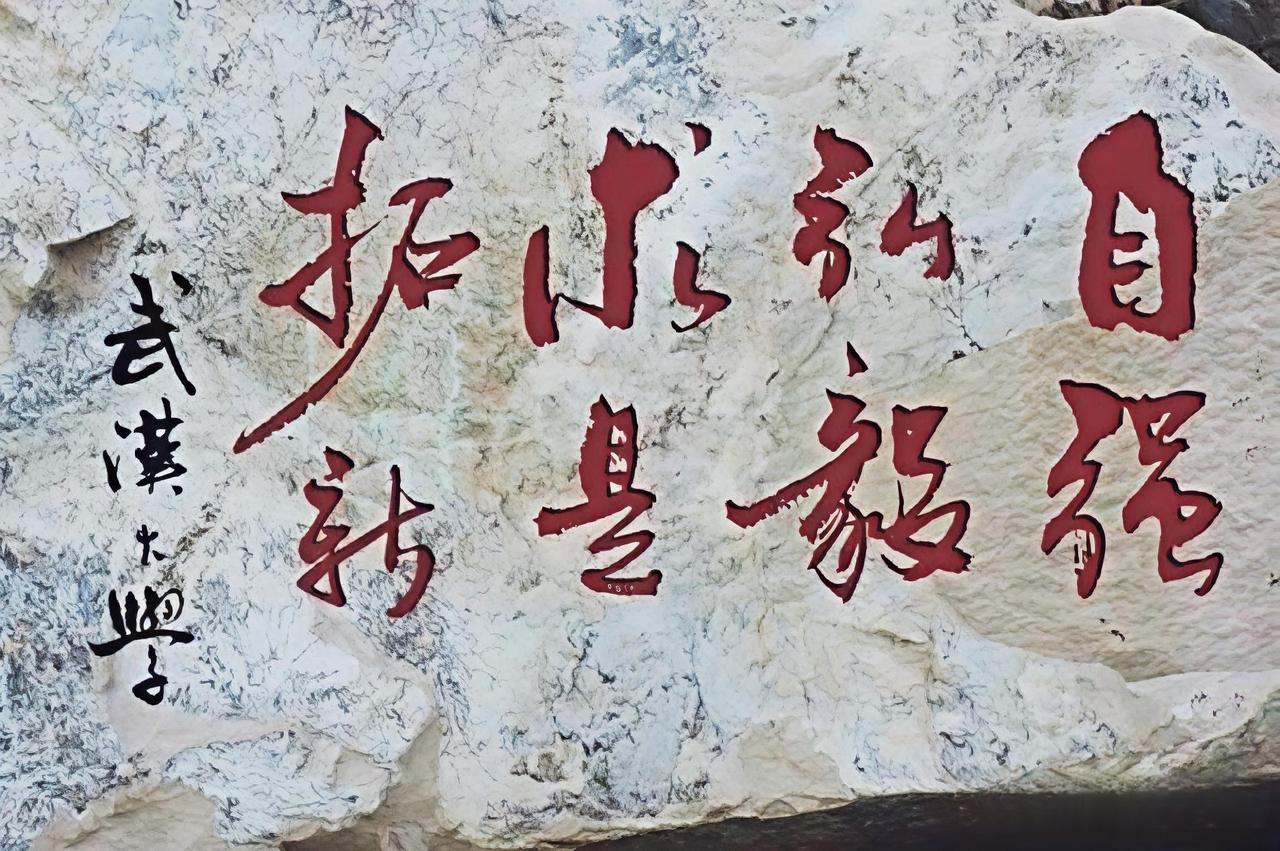 自强
弘毅
求是
拓新
武漢大學